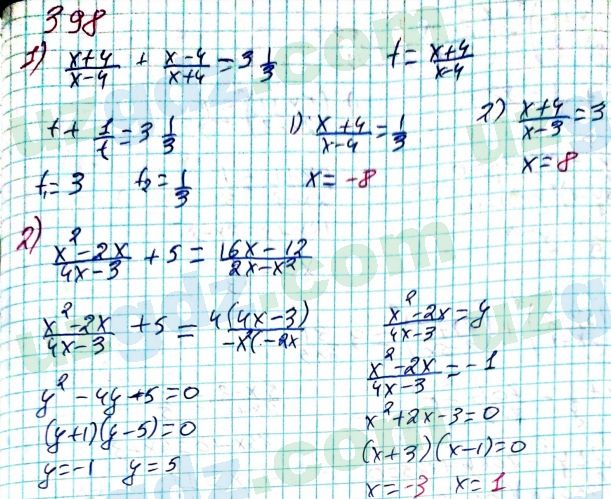 398
1) (x+4)/(x-4) + (x-4)/(x+4) = 3 1/3     t = (x+4)/(x-4)
t + 1/t = 3 1/3     1) (x+4)/(x-4) = 1/3     2) (x+4)/(x-3) = 3
t₁ = 3     t₂ = 1/3     x = -8     x = 8
2)
(x²-2x)/(4x-3) + 5 = (16x-12)/(2x-x²)
(x²-2x)/(4x-3) + 5 = 4(4x-3)/(-x²(-2x)     (x²-2x)/(4x-3) = y
(x²-2x)/(4x-3) = -1
y² - 4y + 5 = 0     x² + 2x - 3 = 0
(y+1)(y-5) = 0     (x+3)(x-1) = 0
y = -1   y = 5     x = -3   x = 1